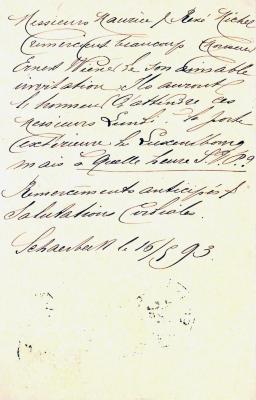 Messieurs Maurice & René Michel
remercient beaucoup Monsieur
Ernest Wiène de son aimable
invitation Ils auront
l'honneur d'attendre ces
Messieurs Lundi à la porte
extérieure le Luxembourg
mais à Quelle heure S.V.P.?
Remerciments anticipés &
Salutations Cordiales.
Schaerbeek le 16/5 93.